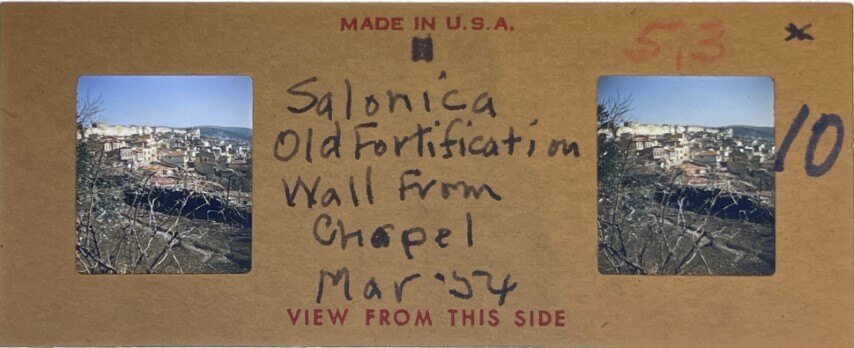 MADE IN U.S.A.
5,3
x
Salonica
Old Fortification
Wall From
Chapel
Mar '54
10
VIEW FROM THIS SIDE